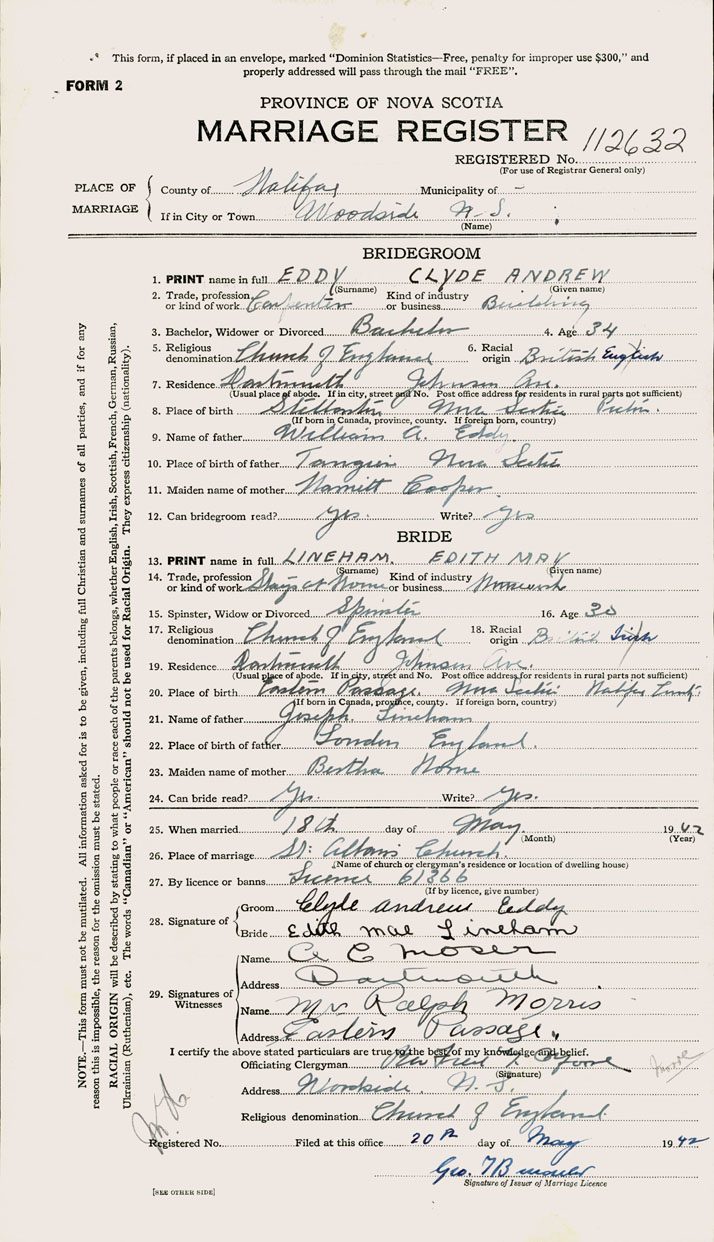 This form, if placed in an envelope, marked "Dominion Statistics—Free, penalty for improper use $300," and
properly addressed will pass through the mail "FREE".
FORM 2
PROVINCE OF NOVA SCOTIA
MARRIAGE REGISTER
112632
REGISTERED No.
(For use of Registrar General only)
PLACE OF MARRIAGE
County of Halifax Municipality of -
If in City or Town Woodside N.S.
(Name)
BRIDEGROOM
1. PRINT name in full EDDY CLYDE ANDREW
(Surname) (Given name)
2. Trade, profession or kind of work Carpenter Kind of industry or business Building
3. Bachelor, Widower or Divorced Bachelor 4. Age 34
5. Religious denomination Church of England 6. Racial origin British English
7. Residence Dartmouth Johnson Ave.
(Usual place of abode. If in city, street and No. Post office address for residents in rural parts not sufficient)
8. Place of birth Stellarton Nova Scotia Pictou.
(If born in Canada, province, county. If foreign born, country)
9. Name of father William A. Eddy
10. Place of birth of father Tangier Nova Scotia
11. Maiden name of mother Harriett Cooper
12. Can bridegroom read? yes. Write? yes
BRIDE
13. PRINT name in full LINEHAM. EDITH MAY
(Surname) (Given name)
14. Trade, profession or kind of work Stays at Home Kind of industry or business Housework
15. Spinster, Widow or Divorced Spinster 16. Age 30
17. Religious denomination Church of England 18. Racial origin British Irish
19. Residence Dartmouth Johnson Ave.
(Usual place of abode. If in city, street and No. Post office address for residents in rural parts not sufficient)
20. Place of birth Eastern Passage. Nova Scotia Halifax County
(If born in Canada, province, county. If foreign born, country)
21. Name of father Joseph Lineham
22. Place of birth of father London England.
23. Maiden name of mother Bertha Horne
24. Can bride read? Yes. Write? Yes.
25. When married 18th day of May 1942
(Month) (Year)
26. Place of marriage St. Albans Church.
(Name of church or clergyman's residence or location of dwelling house)
27. By licence or banns Licence 61366
(If by licence, give number)
28. Signature of
Groom Clyde Andrew Eddy
Bride Edith Mae Lineham
29. Signatures of Witnesses
Name C E Moser
Address Dartmouth
Name Mrs Ralph Morris
Address Eastern Passage
I certify the above stated particulars are true to the best of my knowledge and belief.
Officiating Clergyman
(Signature)
Address Woodside. N.S.
Religious denomination Church of England.
Registered No. Filed at this office 20th day of May 1942
Signature of Issuer of Marriage Licence
[SEE OTHER SIDE]
NOTE.—This form must not be mutilated. All information asked for is to be given, including full Christian and surnames of all parties, and if for any
reason this is impossible, the reason for the omission must be stated.
RACIAL ORIGIN will be described by stating to what people or race each of the parents belongs, whether English, Irish, Scottish, French, German, Russian,
Ukrainian (Ruthenian), etc. The words "Canadian" or "American" should not be used for Racial Origin. They express citizenship (nationality).